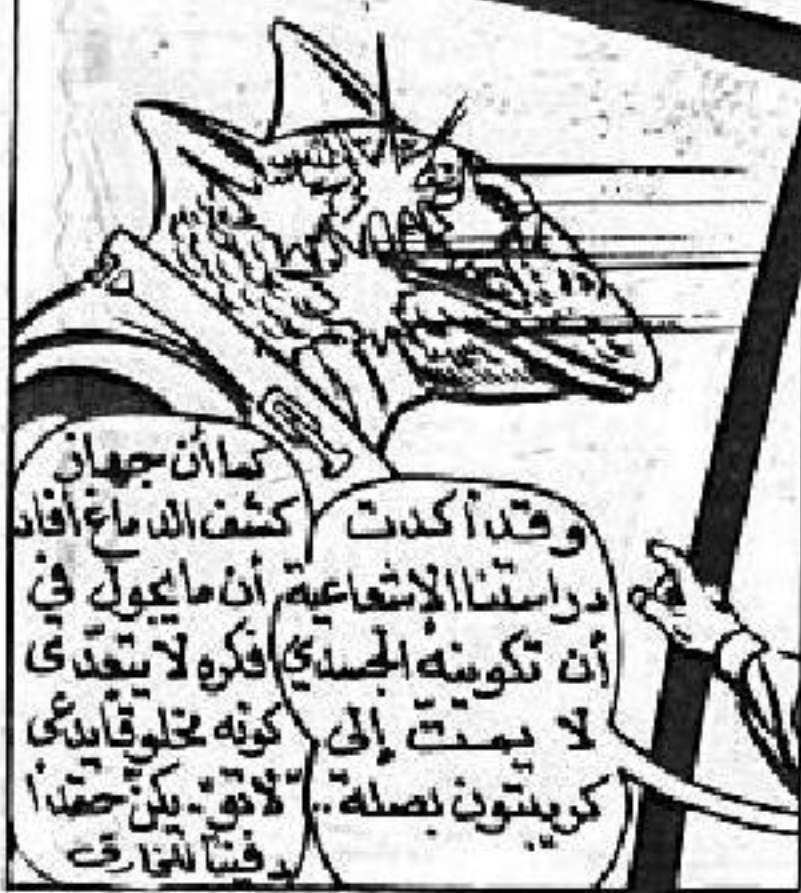 وقد أكدت
دراستنا الإشعاعية
أن تكوينه الجسدي
لا يمتّ إلى
كريبتون بصلة..
كما أن جهاز
كشف الدماغ أفاد
أن ما يجول في
فكره لا يتعدّى
كونه مخلوقا يدعى
يكنّ حقدا
دفينا للخارق